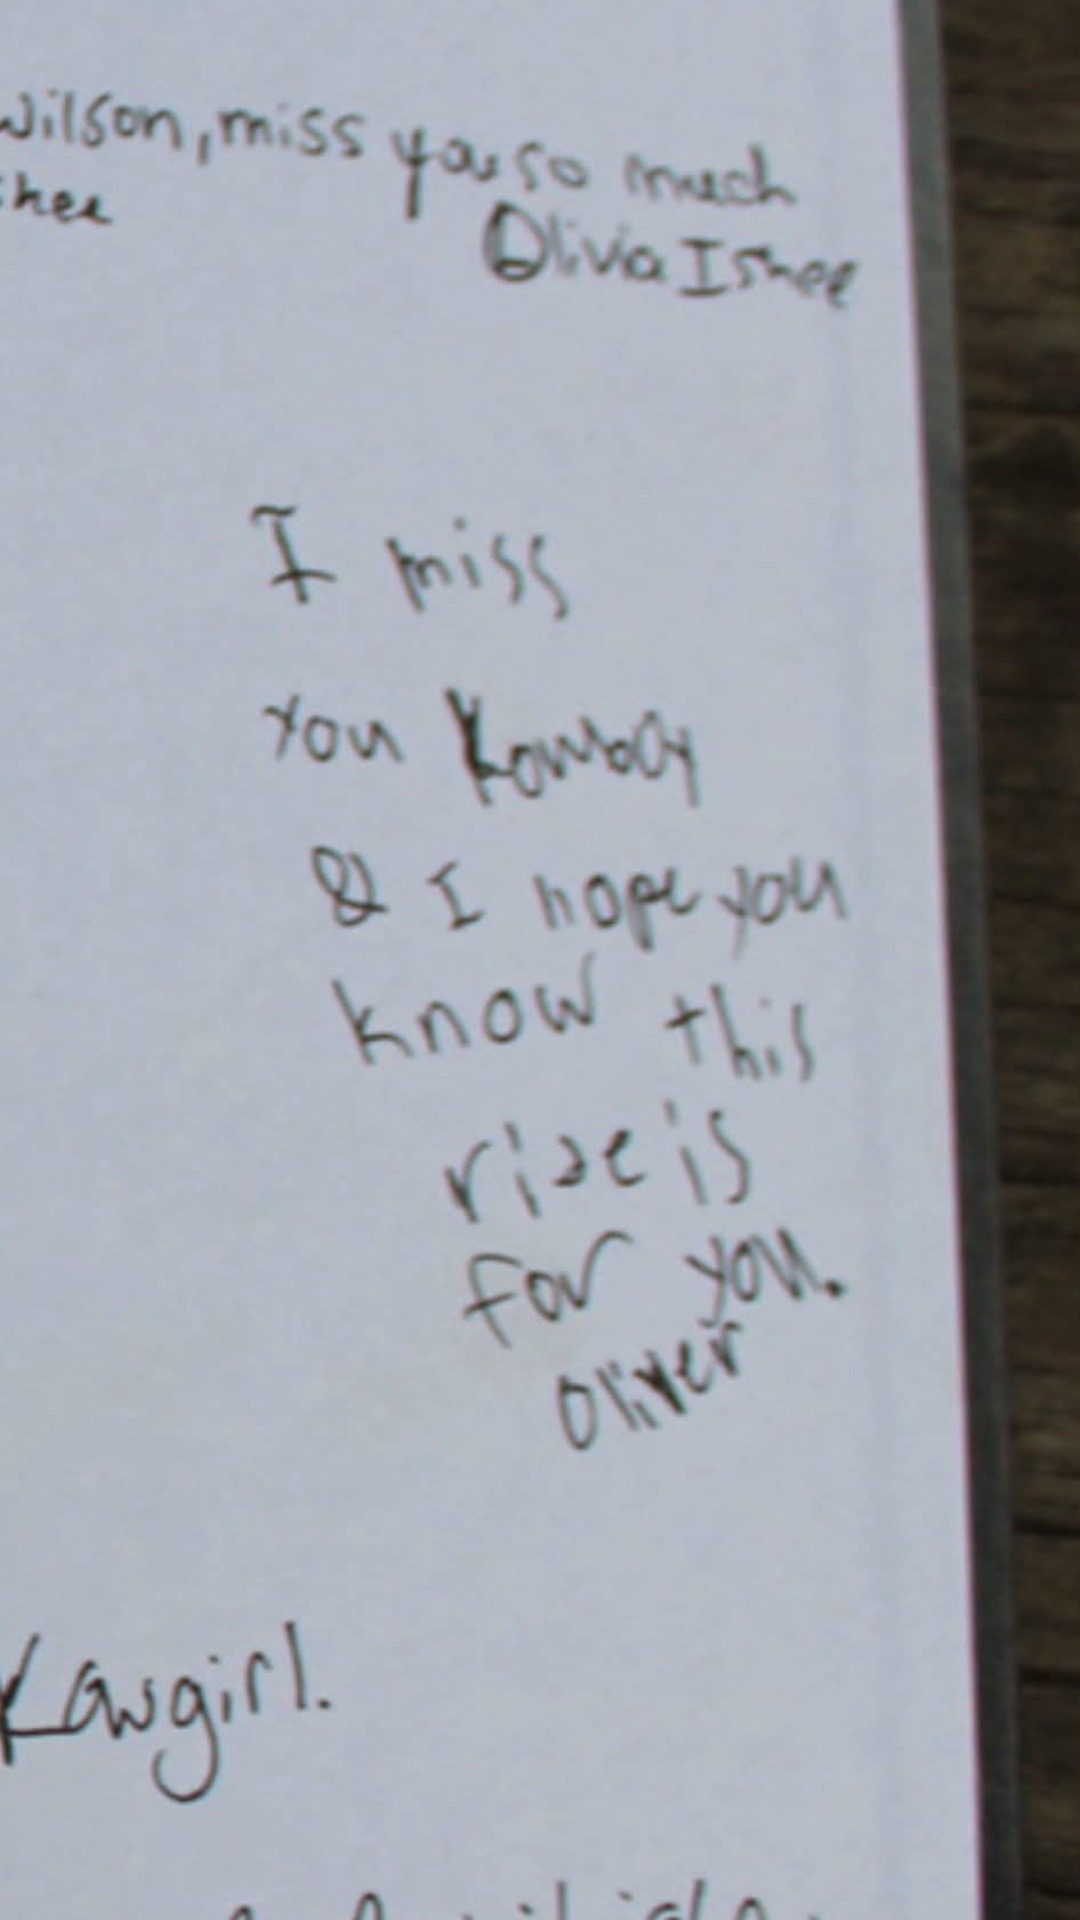 Wilson, miss you so much
shee
Olivia Ishee
I miss
you Kowboy
& I hope you
know this
rise is
for you.
Oliver
Kawgirl.